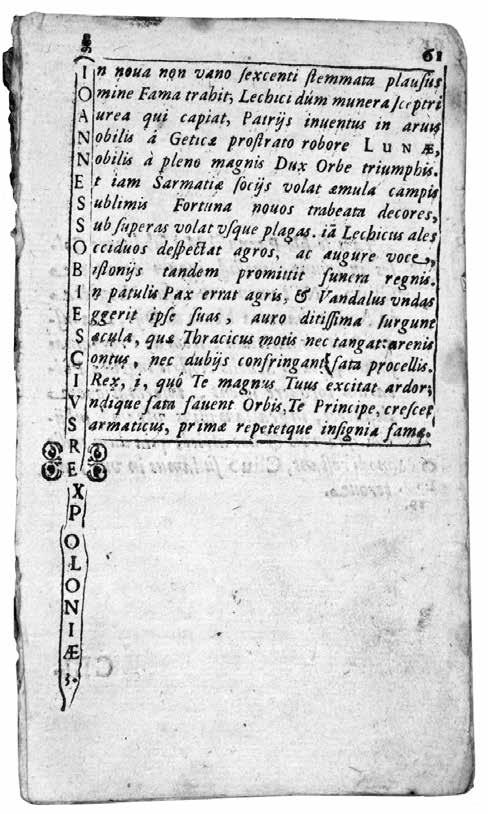 61
In noua non vano ſexcenti ſtemmata plauſus
Omine Fama trahit; Lechici dùm munera ſceptri
Aurea qui capiat, Patrijs inuentus in aruis
Nobilis á Geticæ proſtrato robore LUNÆ,
Nobilis á pleno magnis Dux Orbe triumphis.
Et iam Sarmatiæ ſocijs volat æmula campis
Sublimis Fortuna nouos trabeata decores,
Sub ſuperas volat vſque plagas. iā Lechicus ales
Occiduos deſpectat agros, ac augure voce,
Biſtonijs tandem promittit funera regnis.
In patulis Pax errat agris, & Vandalus vndas
Eggerit ipſe ſuas, auro ditiſſima ſurgunt
Sæcula, quæ Thracicus motis nec tangat arenis
Contus, nec dubijs confringant fata procellis.
I Rex, i, quó Te magnus Tuus excitat ardor;
Vndique fata fauent Orbis, Te Principe, creſcet
Sarmaticus, primæ repetetque inſignia famæ.
REX
POLONIÆ